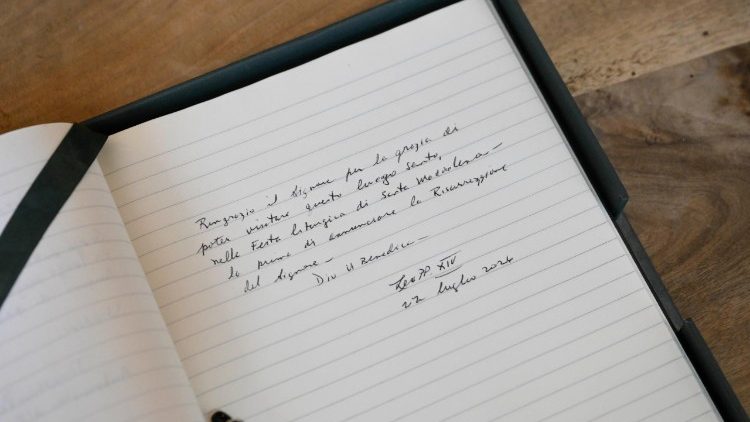 Ringrazio il Signore per la grazia di
poter visitare questo luogo santo,
nella Festa liturgica di Santa Maddalena –
la prima di annunciare la Risurrezione
del Signore – Dio vi Benedica –
Leo PP XIV
22 luglio 2026